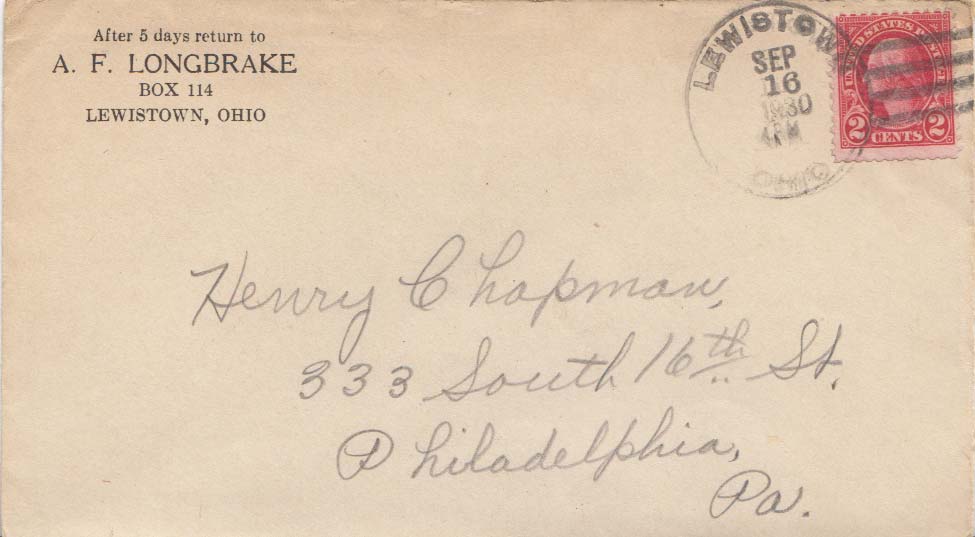 After 5 days return to
A. F. LONGBRAKE
BOX 114
LEWISTOWN, OHIO
LEWISTOWN
SEP
16
1930
4PM
OHIO
UNITED STATES POSTAGE
2 CENTS 2
Henry Chapman,
333 South 16th St.
Philadelphia,
Pa.